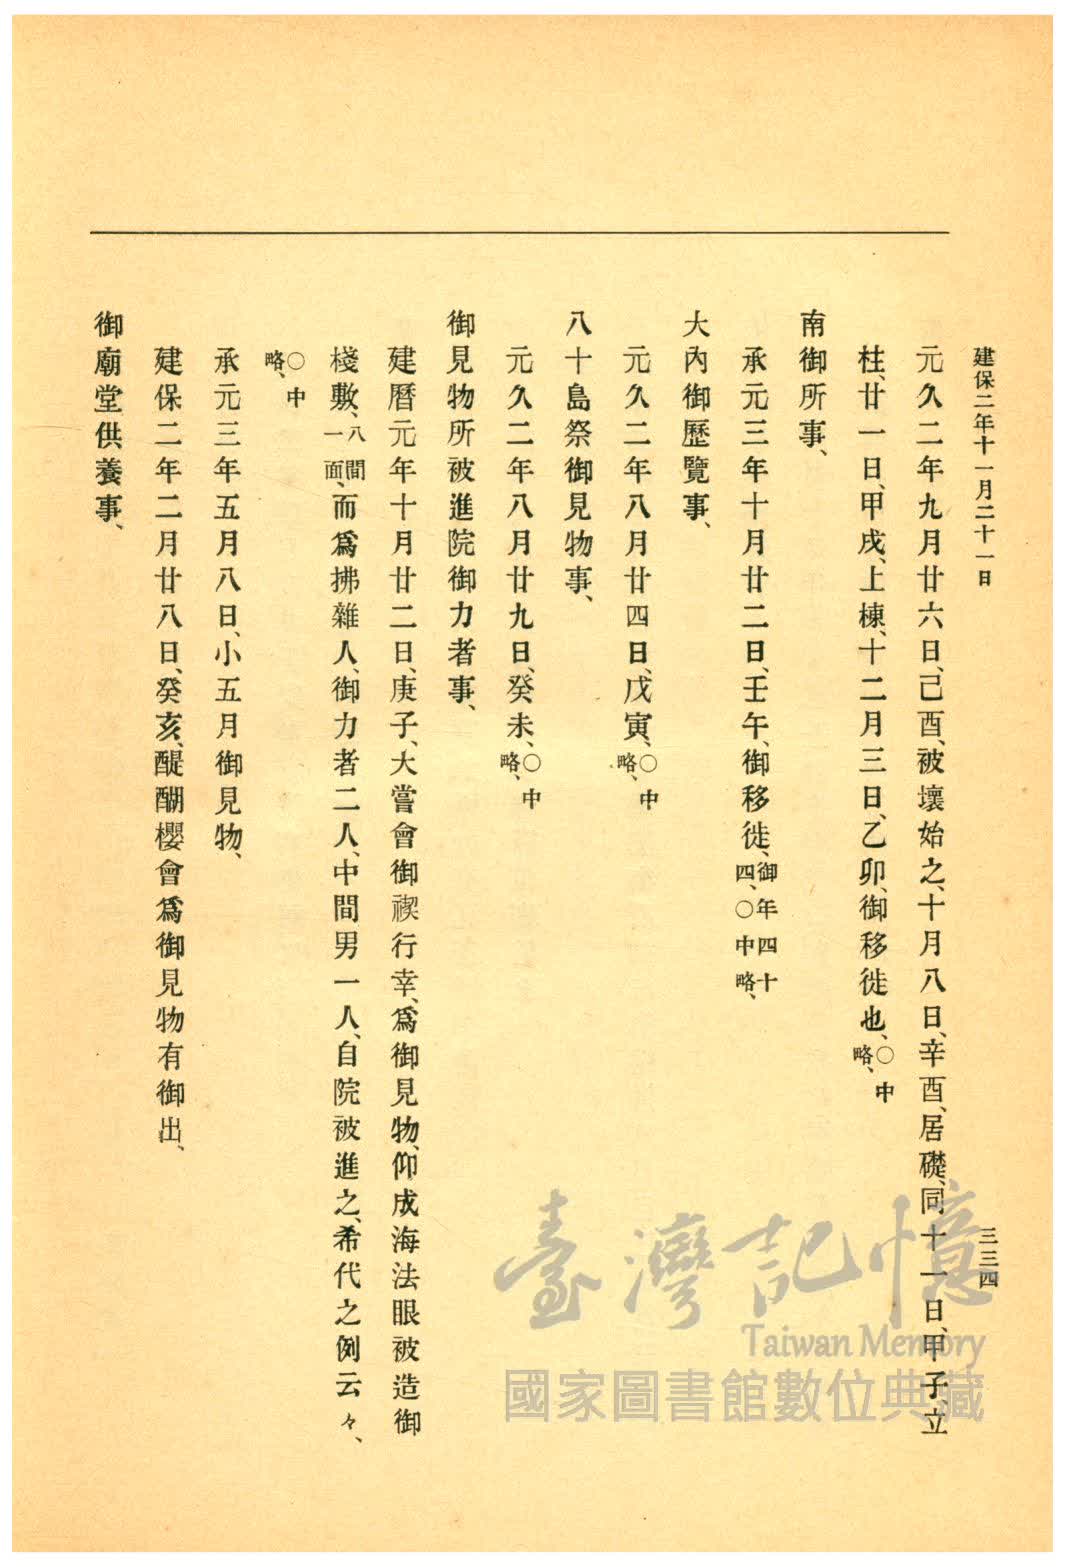 建保二年十一月二十一日
三三四
元久二年九月廿六日、己酉、被壞始之、十月八日、辛酉、居礎、同十一日、甲子、立
柱、廿一日、甲戌、上棟、十二月三日、乙卯、御移徙也、〇中略、
南御所事、
承元三年十月廿二日、壬午、御移徙、御年四十四、〇中略、
大內御歷覽事、
元久二年八月廿四日、戊寅、〇中略、
八十島祭御見物事、
元久二年八月廿九日、癸未、〇中略、
御見物所被進院御力者事、
建曆元年十月廿二日、庚子、大嘗會御禊行幸、爲御見物、仰成海法眼被造御
棧敷、八間一面、而爲拂雜人、御力者二人、中間男一人、自院被進之、希代之例云々、
〇中略、
承元三年五月八日、小五月御見物、
建保二年二月廿八日、癸亥、醍醐櫻會爲御見物有御出、
御廟堂供養事、
臺灣記憶
Taiwan Memory
國家圖書館數位典藏